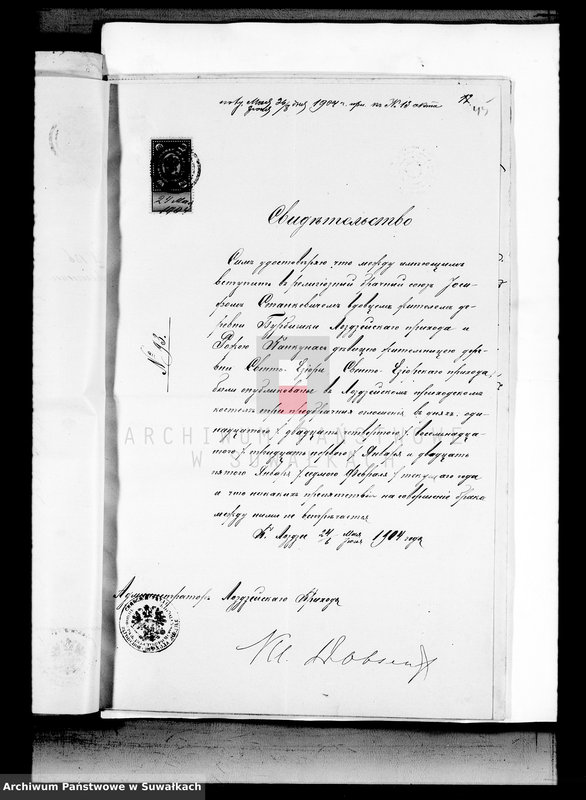 пол. Мая 26/8 дня 1904 г. при къ № 13 акта
Іюня
45
24 Мая
1904
Свидѣтельство
Симъ удостовѣряю что между имѣющимъ
вступить въ религіозный брачный союзъ Іоси-
фомъ Станкевичемъ вдовцемъ жителемъ де-
ревни Бурбишки Лоздзейскаго прихода и
Розою Янкунасъ дѣвицею жительницею дере-
вни Свенто-Езіоры Свенто-Езіорскаго прихода
были опубликованы въ Лоздзейскомъ приходскомъ
костелѣ три предбрачныя оглашенія въ дняхъ: оди-
надцатого / двадцать четвертого /, восемнадца-
того / тридцать перваго / Января и двадцать
пятого Января / седьмого Февраля / текущаго года
и что никакихъ препятствій на совершеніе брака
между ними не встрѣчается
К. Лоздзее 24/6 Мая 1904 года
Іюня
№ 73.
Администраторъ Лоздзейскаго Прихода
ARCHIWUM PAŃSTWOWE
W SUWAŁKACH
Archiwum Państwowe w Suwałkach